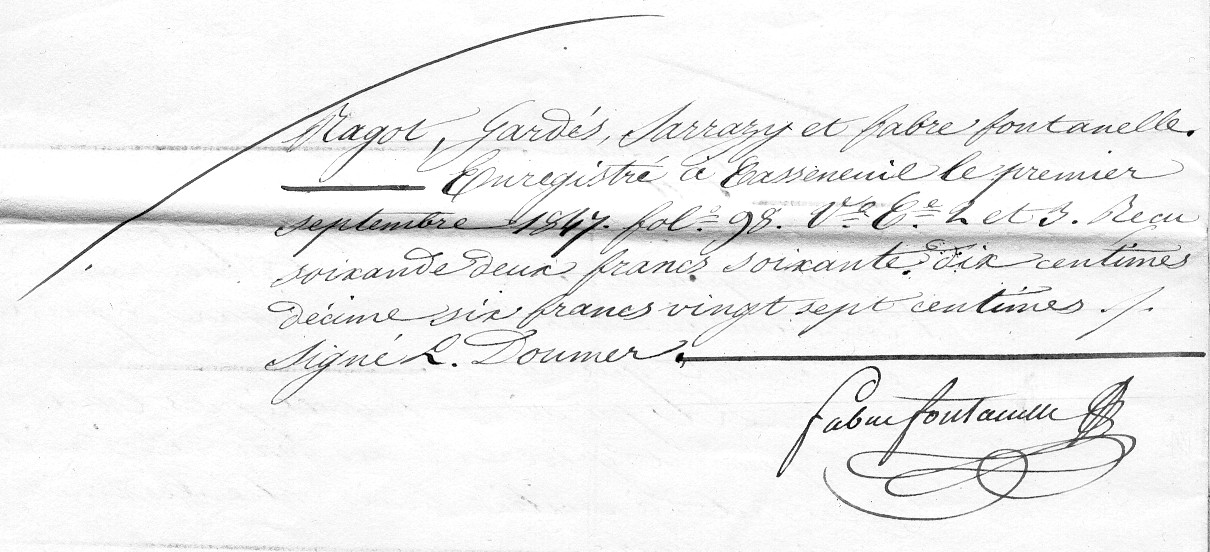 Ragot, Gardés, Sarrazy et fabre fontanelle.
Enregistré a Casseneuil le premier
septembre 1847. fol.o 98. V.o C.e 2 et 3. Recu
soixande deux francs soixante dix centimes
décime six francs vingt sept centimes ./.
Signé L. Doumer.
fabre fontanelle